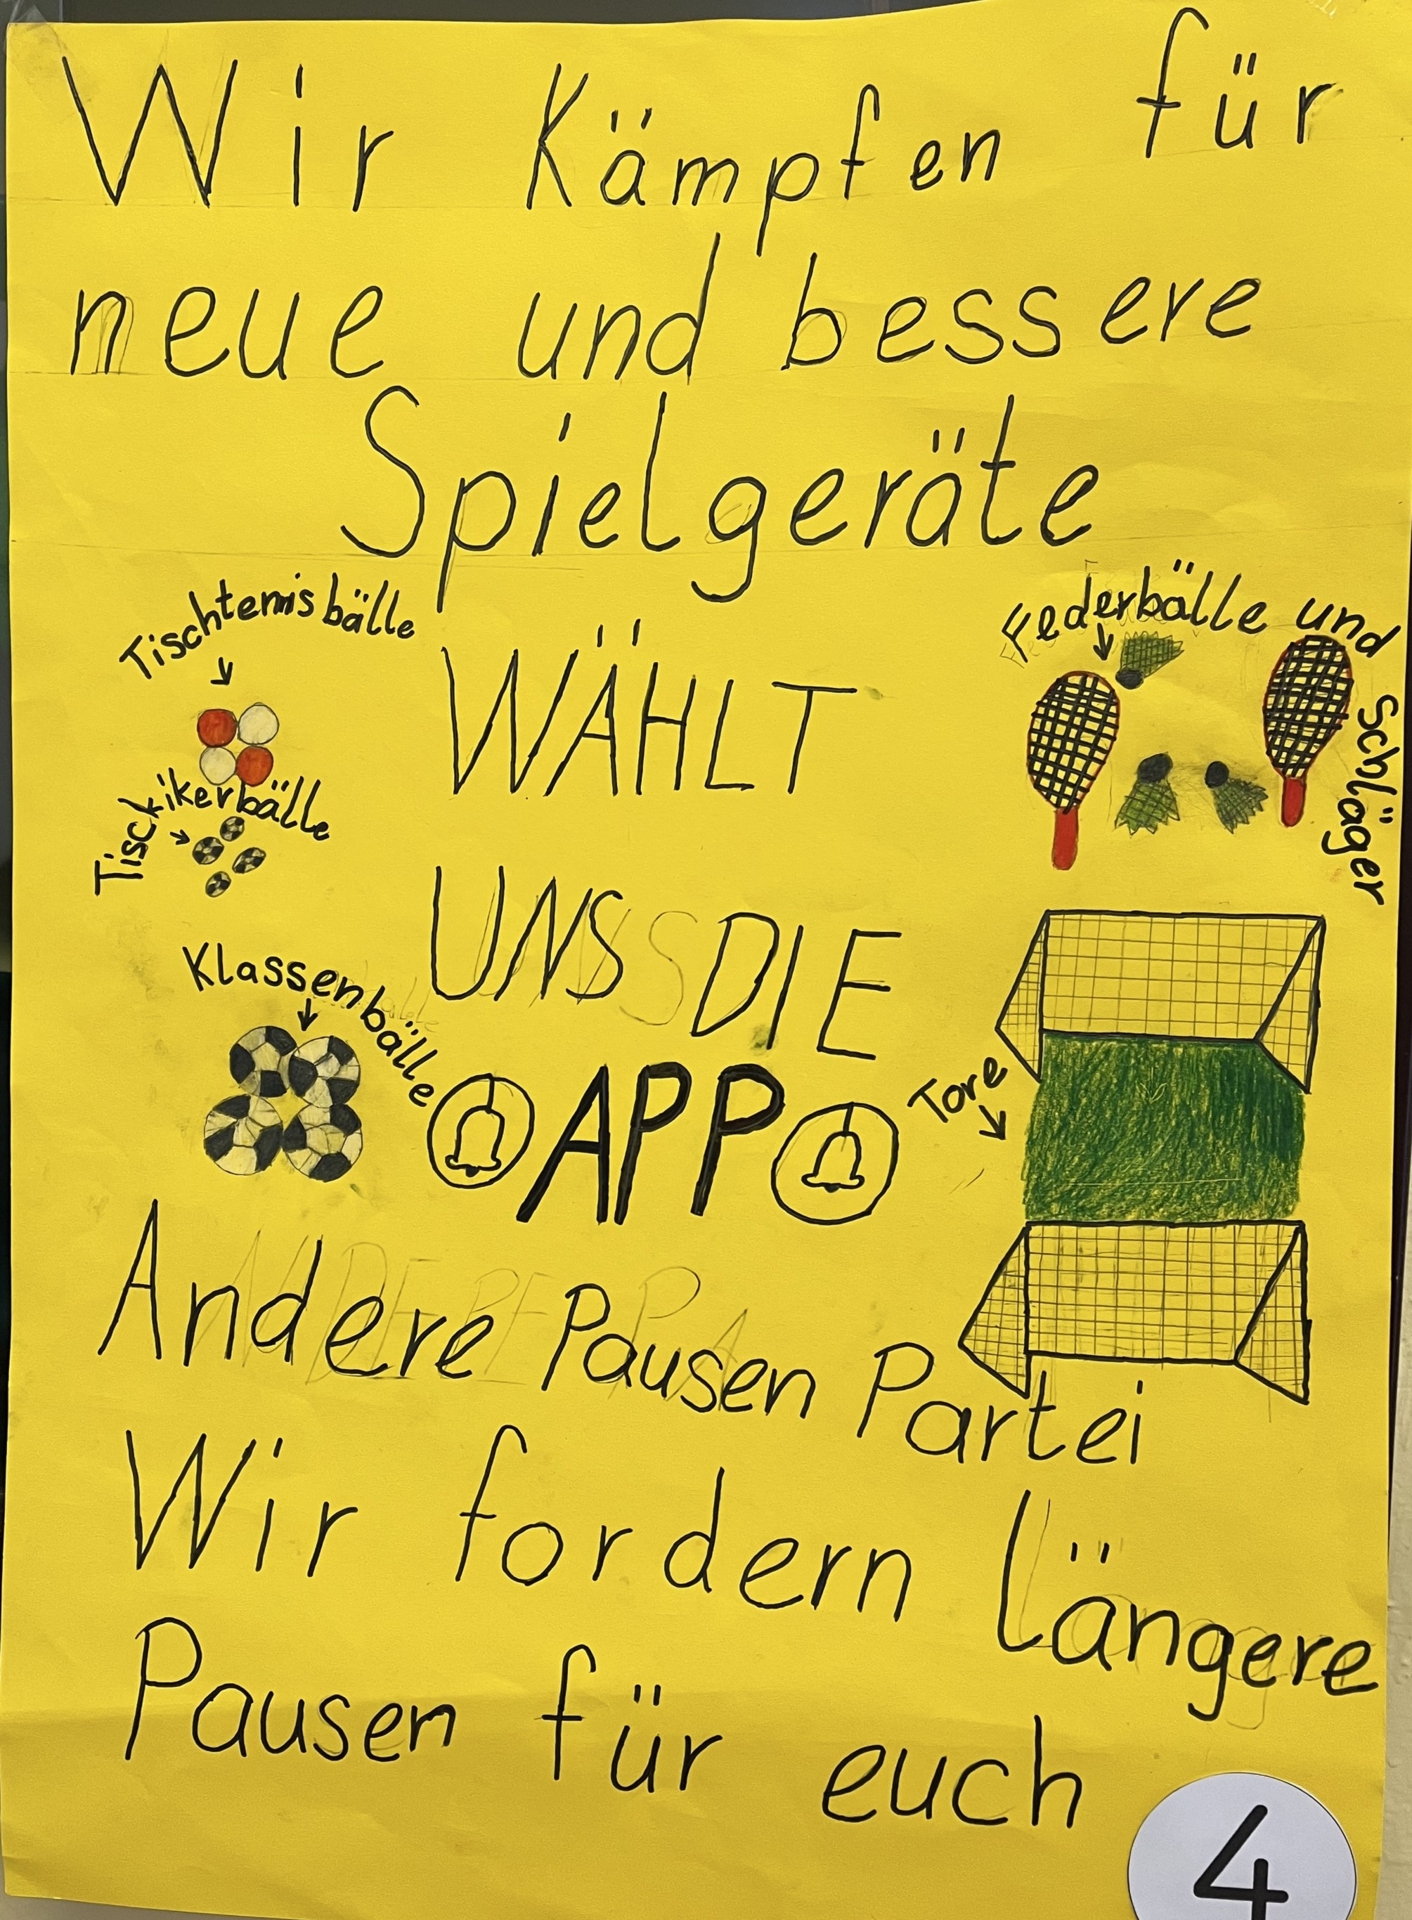 Wir Kämpfen für
neue und bessere
Spielgeräte
Tischtennisbälle
Federbälle und
Schläger
WÄHLT
Tischkikerbälle
UNS DIE
Klassenbälle
Tore
APP
Andere Pausen Partei
Wir fordern längere
Pausen für euch
4